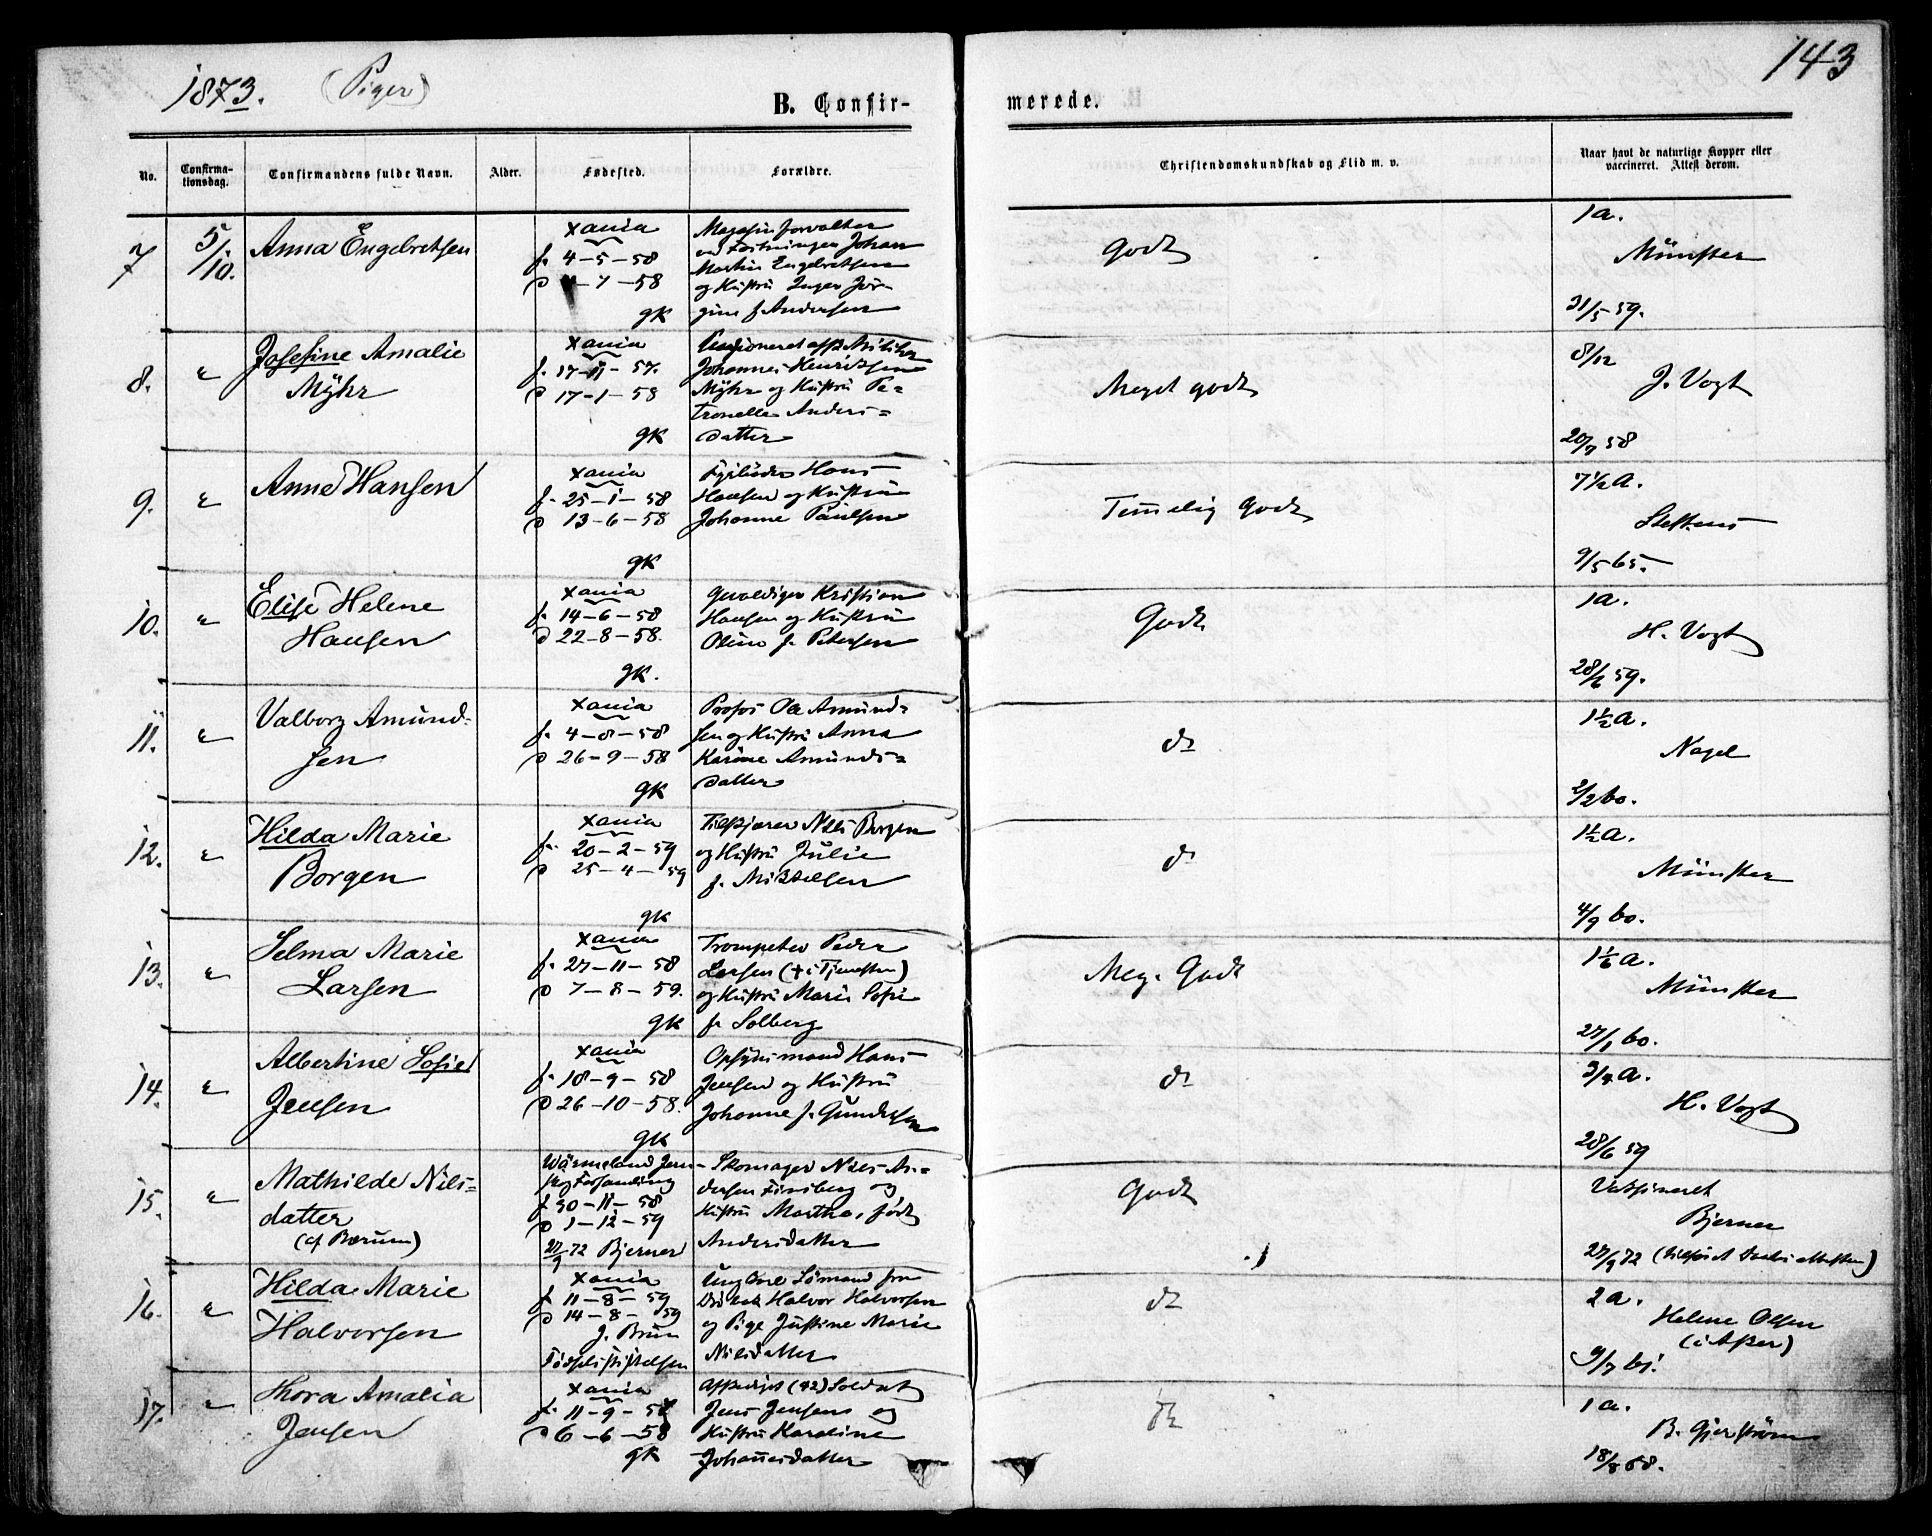 1873. (Piger)
143
B. Confir-
merede.
No.
Confirma-
tionsdag.
Confirmandens fulde Navn.
Alder.
Fødested.
Forældre.
Christendomskundskab og Flid m. v.
Naar havt de naturlige Kopper eller
vaccineret. Attest derom.
7
5/10.
Anna Engelbretsen
Xania
f. 4-5-58
D 4-7-58
gK
Magasinforvalter
Johan
Martin Engelbretsen
og Hustru Inger Jør-
gine f. Andersen
Godt
1 a.
Münster
31/5 59.
8.
"
Josefine Amalie
Myhr
Xania
f. 17-11-57.
D 17-1-58
gK
Johannes Henriksen
Myhr og Hustru Pe-
tronelle Anders-
datter
Meget godt
8/12
J. Vogt
20/7 58
9.
"
Anne Hansen
Xania
f. 25-1-58
D 13-6-58
gK
Hans
Hansen og Hustru
Johanne Paulsen
Temmelig Godt
7 1/2 a.
Steffens
9/5 65.
10.
"
Elise Helene
Hansen
Xania
f. 14-6-58
D 22-8-58.
gK.
Gevaldiger Kristian
Hansen og Hustru
Oline f. Petersen
Godt
1 a.
H. Vogt
28/6 59.
11.
"
Valborg Amund-
sen
Xania
f. 4-8-58
D 26-9-58
gK
Profos Ole Amund-
sen og Hustru Anna
Karine Amunds-
datter
do
1 1/2 a.
Nagel
2/2 60.
12.
"
Hilda Marie
Borgen
Xania
f. 20-2-59
D 25-4-59
gK
Tilskjærer Nils Borgen
og Hustru Julie
f. Mikkelsen
do
1 1/2 a.
Münster
4/9 60.
13.
"
Selma Marie
Larsen
Xania
f. 27-11-58
D 7-8-59.
gK
Trompeter Peder
Larsen (+ i Tjenesten)
og Hustru Marie Sofie
f. Solberg
Meg. Godt
1 1/6 a.
Münster
27/1 60.
14.
"
Albertine Sofie
Jensen
Xania
f. 18-9-58
D 26-10-58.
gK
Opsynsmand Hans
Jensen og Hustru
Johanne f. Gundersen
do
3/4 a.
H. Vogt
28/6 59
15.
"
Mathilde Nils-
datter
(af Bærum)
Wärmeland Jern-
skog Forsamling
f 30-11-58
D 1-12-59
27/9 72 Bjerner
Skomager Nils An-
dersen Finsberg og
Hustru Martha, født
Andersdatter
Godt
Vaksineret
Bjerner
27/9 72
16.
"
Hilda Marie
Halvorsen
Xania
f 11-8-59
D 14-8-59
J. Brun
Fødselsstiftelsen
Ungkarl Sømand fra
Drøbak Halvor Halvorsen
og Pige Justine Marie
Nilsdatter
do
2 a.
Helene Olsen
(i Asker)
9/7 61.
17.
"
Thora Amalia
Jensen
Xania
f. 11-9-58
D 6-6-58
gK
Afskediget (42) Soldat
Jens Jensen og
Hustru Karoline
Johannesdatter
do
1 a.
B. Gjerstrøm
18/8 68.